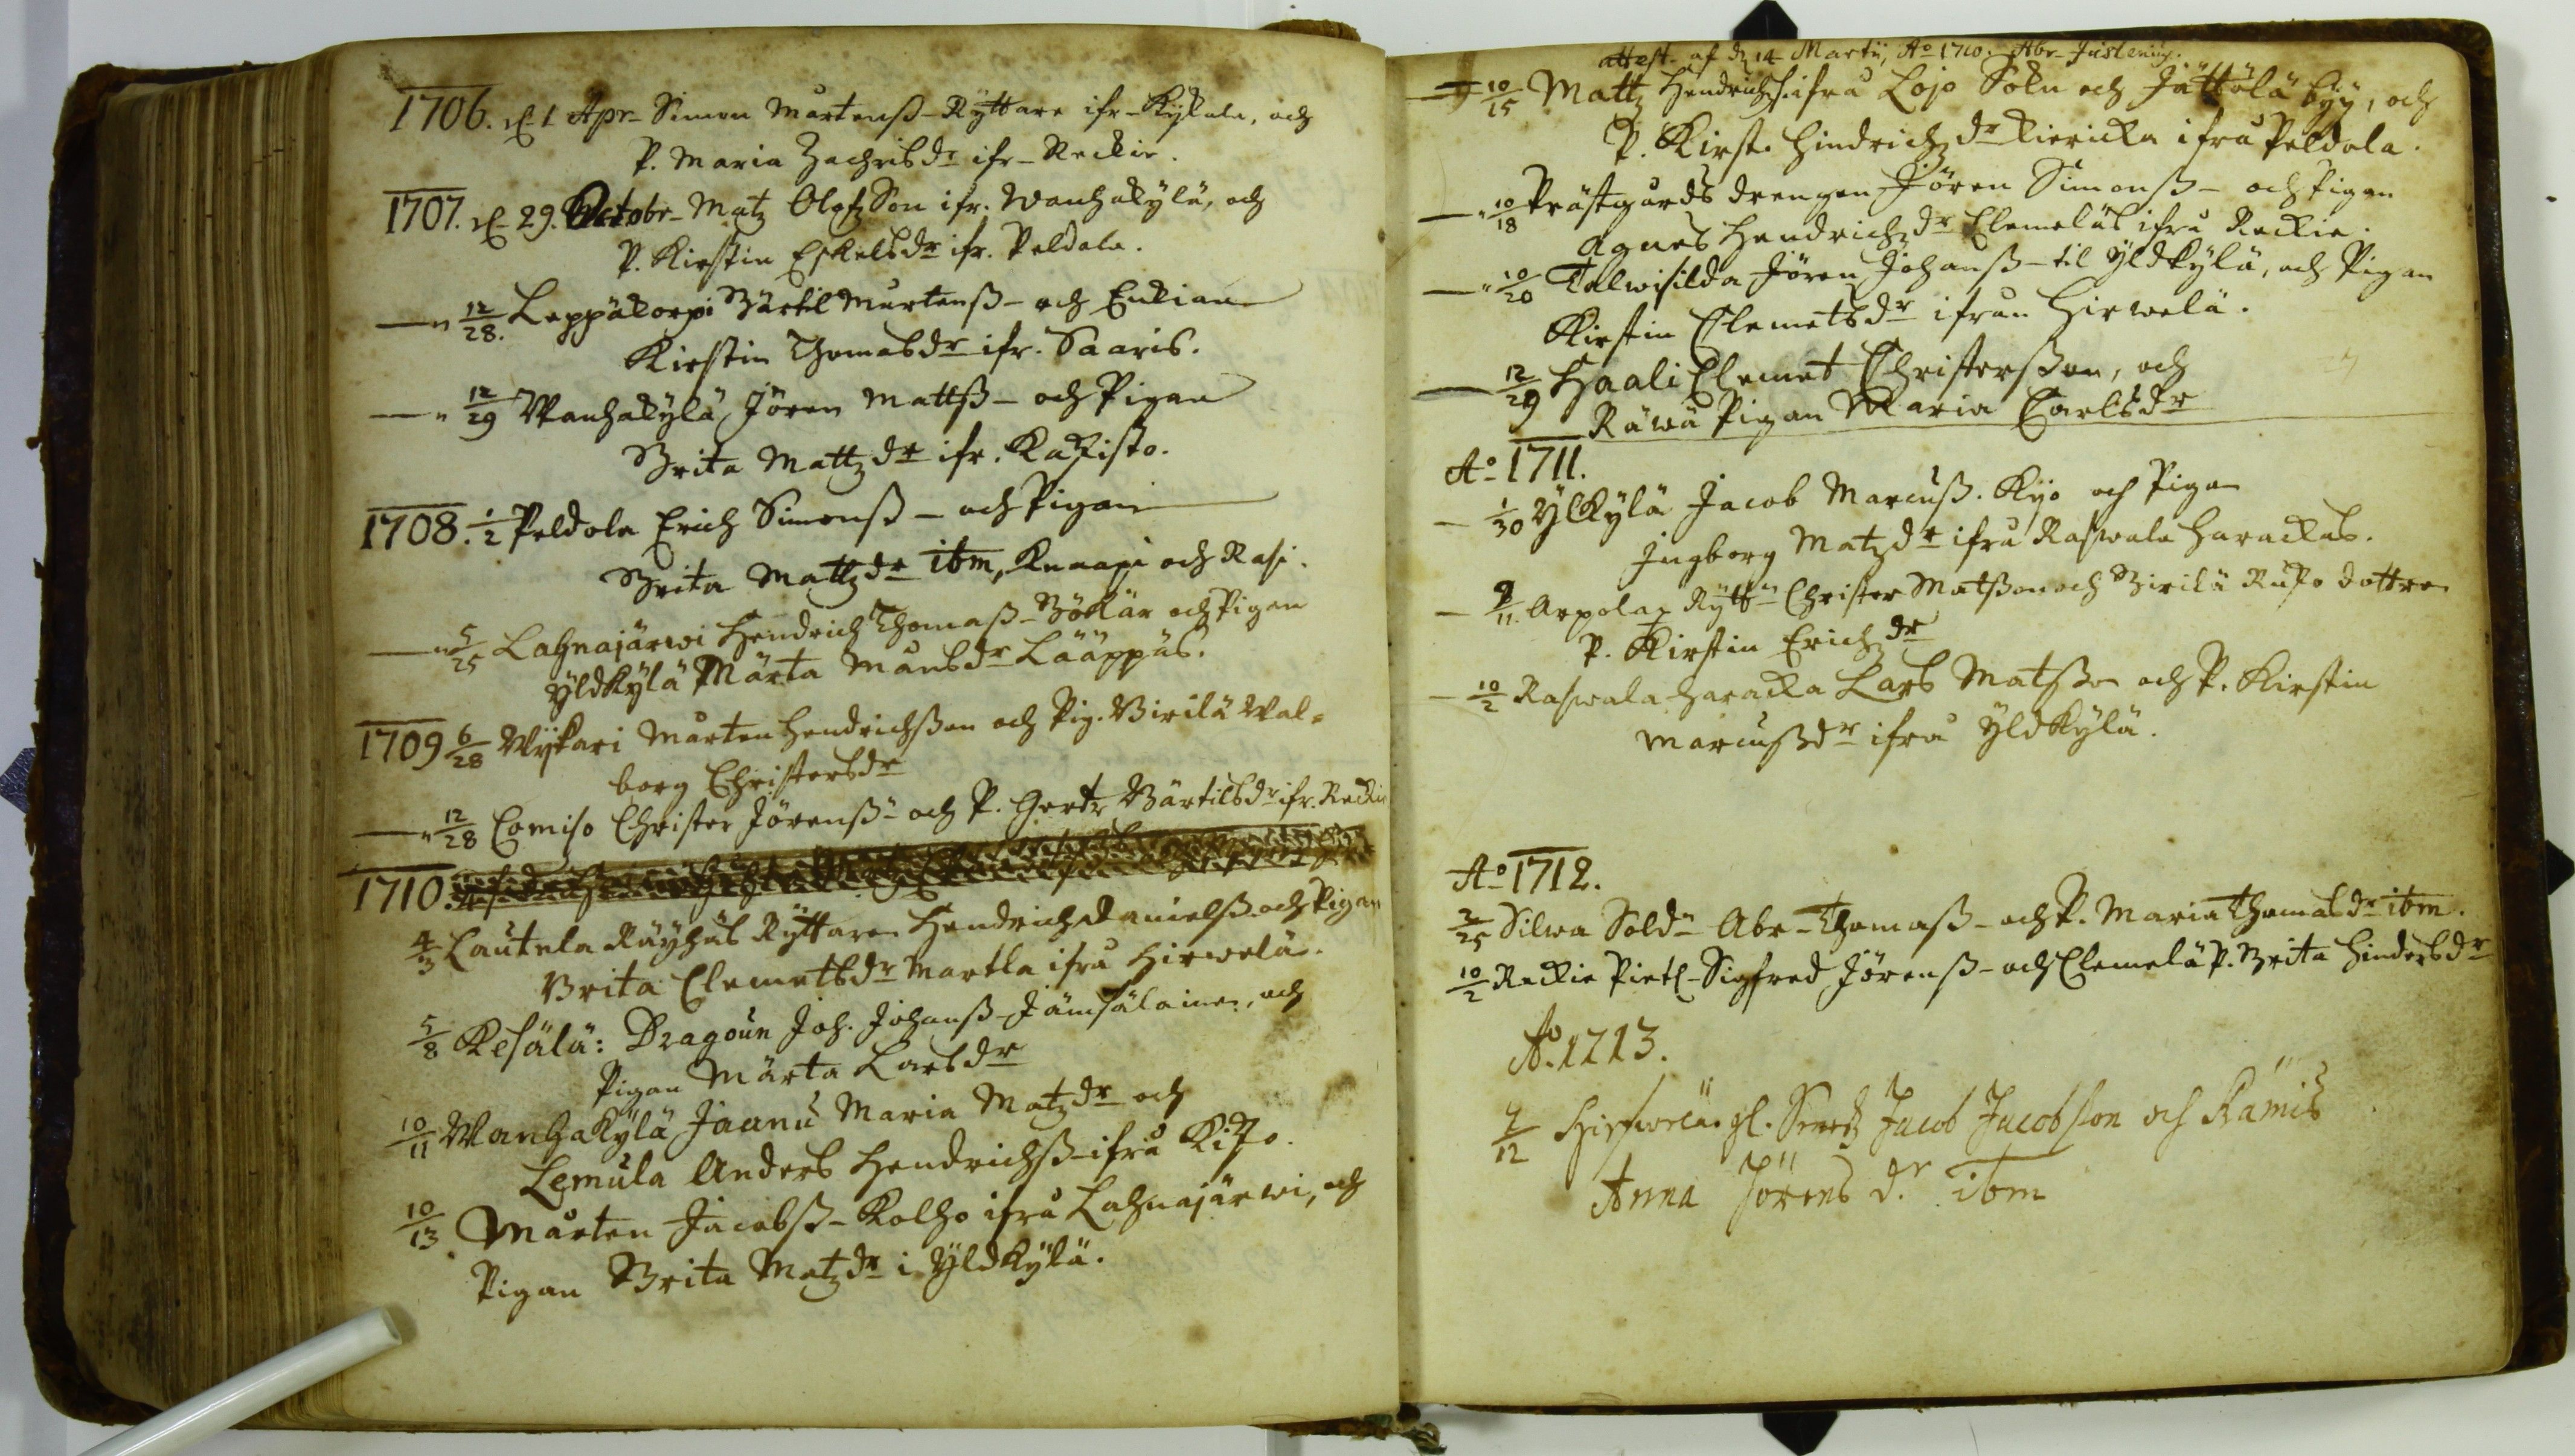 1706. d. 1 Apr- Simon Mårtenß- Ryttare ifr- Kykala, och
P. Maria Zachrisdr ifr- Reckie.
1707. d- 29. Octobr- Matz Olofz Son ifr. Wanhakylä, och
P. Kirstin Eskelsdr ifr. Peldola.
—" 12/28. Leppäkorpi Bärtil Mårtenß- och Enkian
Kirstin Thomasdr ifr. Saaris.
—" 12/29 Wanhakylä Jören Mattß- och Pigan
Brita Mattzdr ifr.
1708. 1/2 Peldola Erich Simonß- och Pigan
Brita Mattzdr ibm, Knaapi och Rasi.
—" 5/25 Lahnajärwi Hendrich Thomaß- Bökär och Pigan
Yldkylä Märta Månsdr Lääppäs.
1709 6/28 Wijkari Mårten Hendrichßon och Pig. Birilä Wal=
borg Christersdr
—" 12/28 Comiso Christer Jörenß- och P. Gertr Bärtilsdr ifr. Reckie
1710.
4/3 Lautela Räyhäs Ryttaren Hendrich Danielß. och Pigan
Brita Clemetsdr Martla ifrå Hirwelä.
5/8 Kesälä: Dragoun Joh. Johanß- Jämsäläinen, och
Pigan Märta Larsdr
10/11 Wanhakylä Jaanu Maria Matzdr och
Lemula Anders Hendrichß- ifrå Kiko.
10/13 Mårten Jacobß- Kolho ifrå Lahnajärwi, och
Pigan Brita Matzdr i Yldkylä.
attest- af d 14 Martii, Ao 1710. Abr- Justenius.
—" 10/15 Mattz Hendrichß. ifrå Lojo Sokn och Jättölä by, och
P. Kirst. Hindrichzdr Kiericka ifrå Peldola.
—" 10/18 Prästgårds drengen Jören Simonß- och Pigan
Agnes Hendrichzdr Clemeläs ifrå Reckie.
—" 10/20 Talwisilda Jören Johanß- til Yldkylä, och Pigan
Kirstin Clemetsdr ifrån Hirwelä.
— 12/29 Haali Clemet Christersßon, och
Räwä Pigan Maria Carlsdr
Ao 1711.
— 1/30 Ylkylä Jacob Marcuß. Kyö och Pigan
Ingborg Matzdr ifrå Raswala Harackas.
— 9/11. Arpola Rytt- Christer Matßon och Birilä Dottren
P. Kirstin Erichzdr
— 10/2 Raswala Haracka Lars Matßon och P. Kirstin
Marcußdr ifrå Yldkylä.
Ao 1712.
3/25 Silwa Sold- Abr- Thomaß- och P. Maria Thomasdr ibm.
10/2 Reckie Pietl- Sigfred Jörenß- och Clemelä P. Brita Hindersdr
Ao. 1713.
7/12 Hirfwelä gl. Jacob Jacobsson och Rämis
Anna Jörens dr. ibm